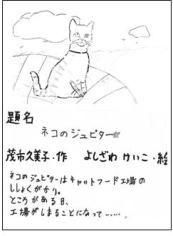 題名
ネコのジュピター
茂市久美子・作　よしざわけいこ・絵
ネコのジュピターはキャットフード工場の
ししょくがかり。
ところがある日、
工場がしまることになって……。